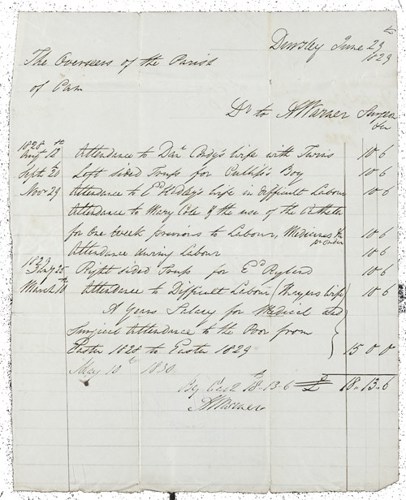 Dursley June 29th
1829
The Overseers of the Parish
of Cam
Dr to A Warner Surgeon
1828
Augt 18th Attendance to Danl Wife with Twins 10 6
Sept 20 Left sided Truss for Boy 10 6
Nov 29 Attendance to Wife in difficult Labour 10 6
Attendance to Mary Cole & the use of the Catheter
for One Week previous to Labour, Medicines &c 10 6
Attendance during Labour 10 6
1829
25 Right sided Truss for Ed 10 6
March Attendance to Difficult Labour ( Wife) 10 6
A Years Salary for Medical and
Surgical Attendance to the Poor from
Easter 1828 to Easter 1829 } 15 0 0
May 10th 1830
By 18-13-6 £ 18-13-6
A Warner